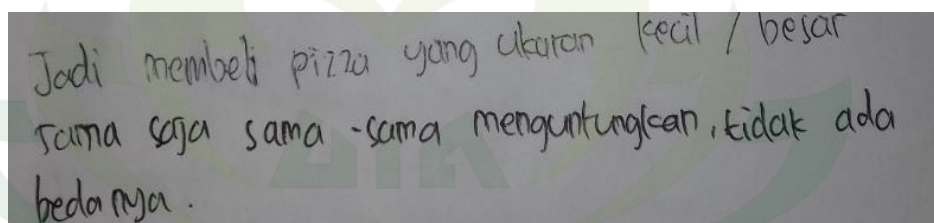 Jadi membeli pizza yang ukuran kecil / besar
sama saja sama-sama menguntungkan, tidak ada
bedanya.